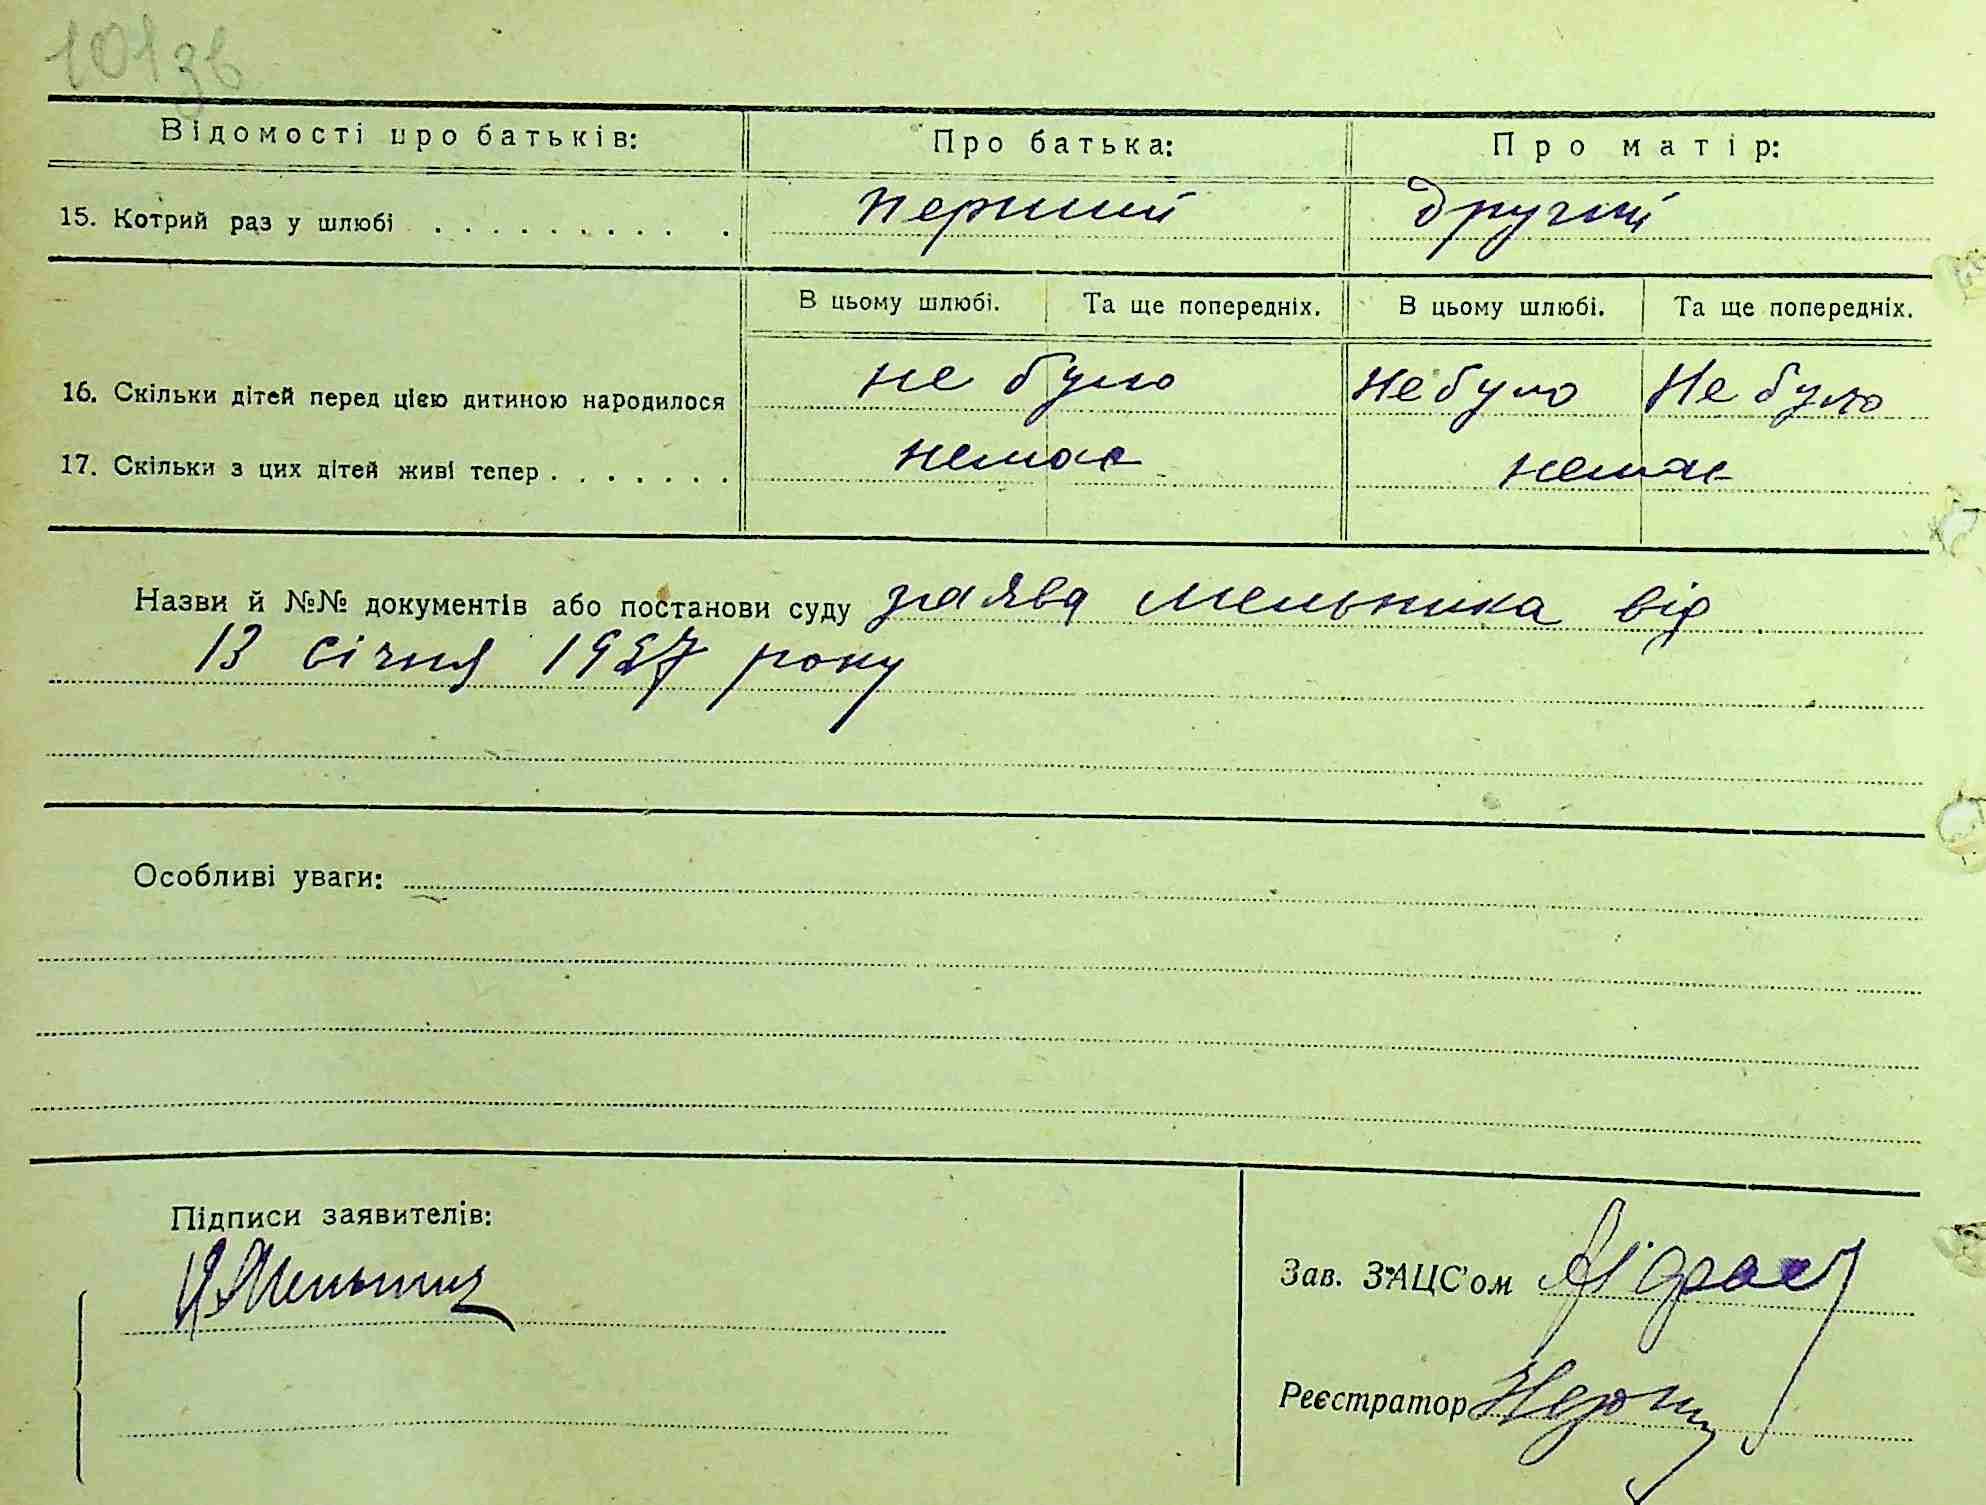 101зв
Відомості про батьків: Про батька: Про матір:
15. Котрий раз у шлюбі . . . . . . . . . . перший другий
В цьому шлюбі. Та ще попередніх. В цьому шлюбі. Та ще попередніх.
16. Скільки дітей перед цією дитиною народилося не було не було не було
17. Скільки з цих дітей живі тепер . . . . . . . немає немає
Назви й №№ документів або постанови суду заява Мельника від
13 січня 1937 року
Особливі уваги:
Підписи заявителів:
Мельник
Зав. ЗАЦС'ом
Реєстратор